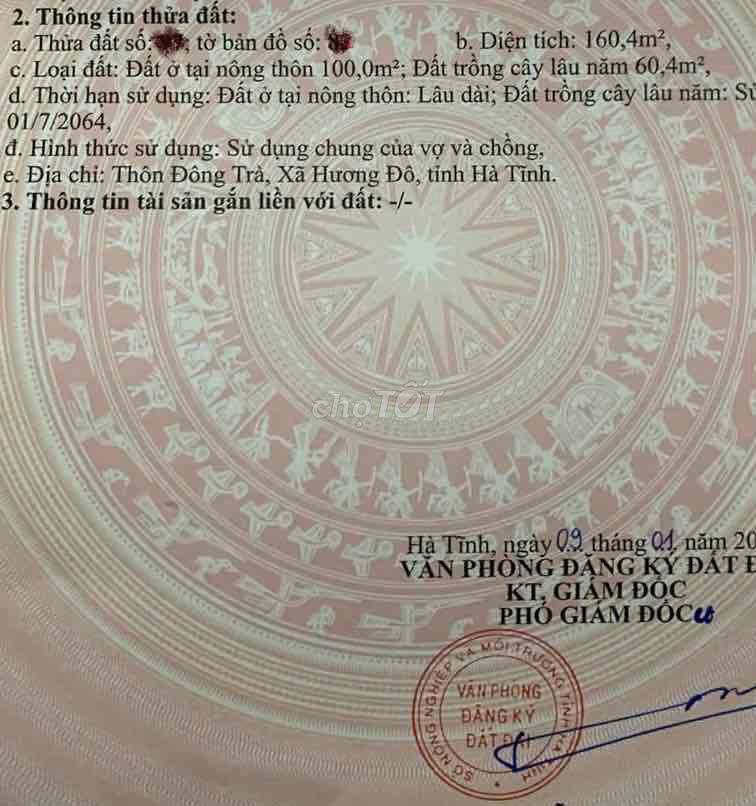 2. Thông tin thửa đất:
a. Thửa đất số: ; tờ bản đồ số: b. Diện tích: 160,4m²,
c. Loại đất: Đất ở tại nông thôn 100,0m²; Đất trồng cây lâu năm 60,4m²,
d. Thời hạn sử dụng: Đất ở tại nông thôn: Lâu dài; Đất trồng cây lâu năm: Sử
01/7/2064,
đ. Hình thức sử dụng: Sử dụng chung của vợ và chồng,
e. Địa chỉ: Thôn Đông Trà, Xã Hương Đô, tỉnh Hà Tĩnh.
3. Thông tin tài sản gắn liền với đất: -/-
chợTỐT
Hà Tĩnh, ngày 09 tháng 01 năm 20
VĂN PHÒNG ĐĂNG KÝ ĐẤT Đ
KT. GIÁM ĐỐC
PHÓ GIÁM ĐỐC
SỞ NÔNG NGHIỆP VÀ MÔI TRƯỜNG TỈNH HÀ TĨNH
VĂN PHÒNG
ĐĂNG KÝ
ĐẤT ĐAI